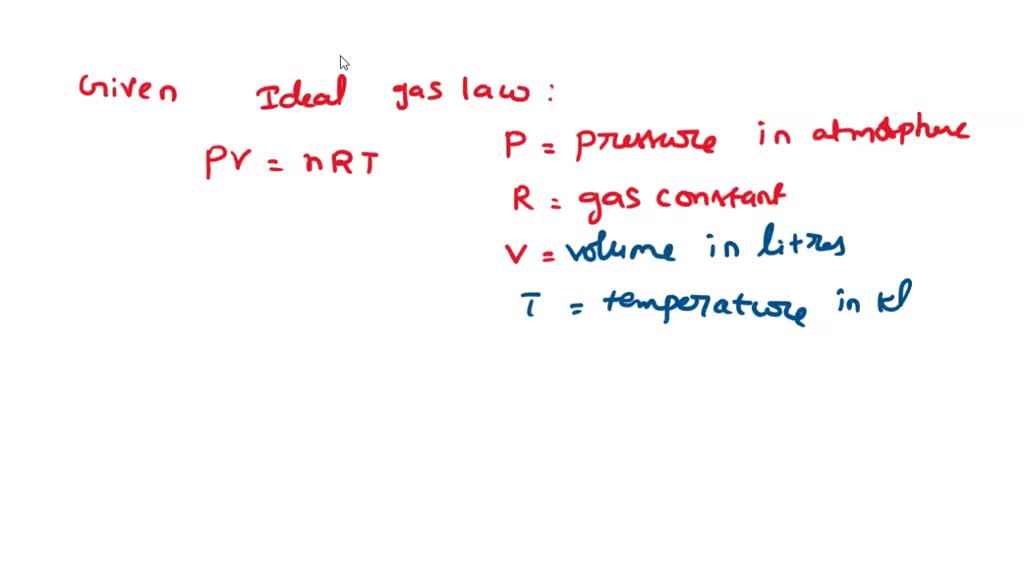 Given Ideal gas law :
PV = nRT
P = pressure in atmosphere
R = gas constant
V = volume in litres
T = temperature in